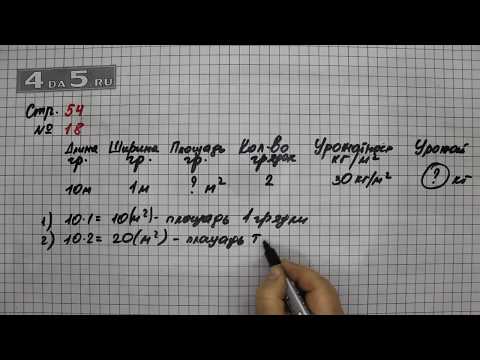 4 DA 5.RU
Стр. 54
№ 18
Длина гр. Ширина гр. Площадь гр. Кол-во грядок Урожайность кг/м² Урожай
10м 1м ? м² 2 30 кг/м² ? кг
1) 10·1= 10(м²)- площадь 1 грядки
2) 10·2= 20(м²) - площадь т